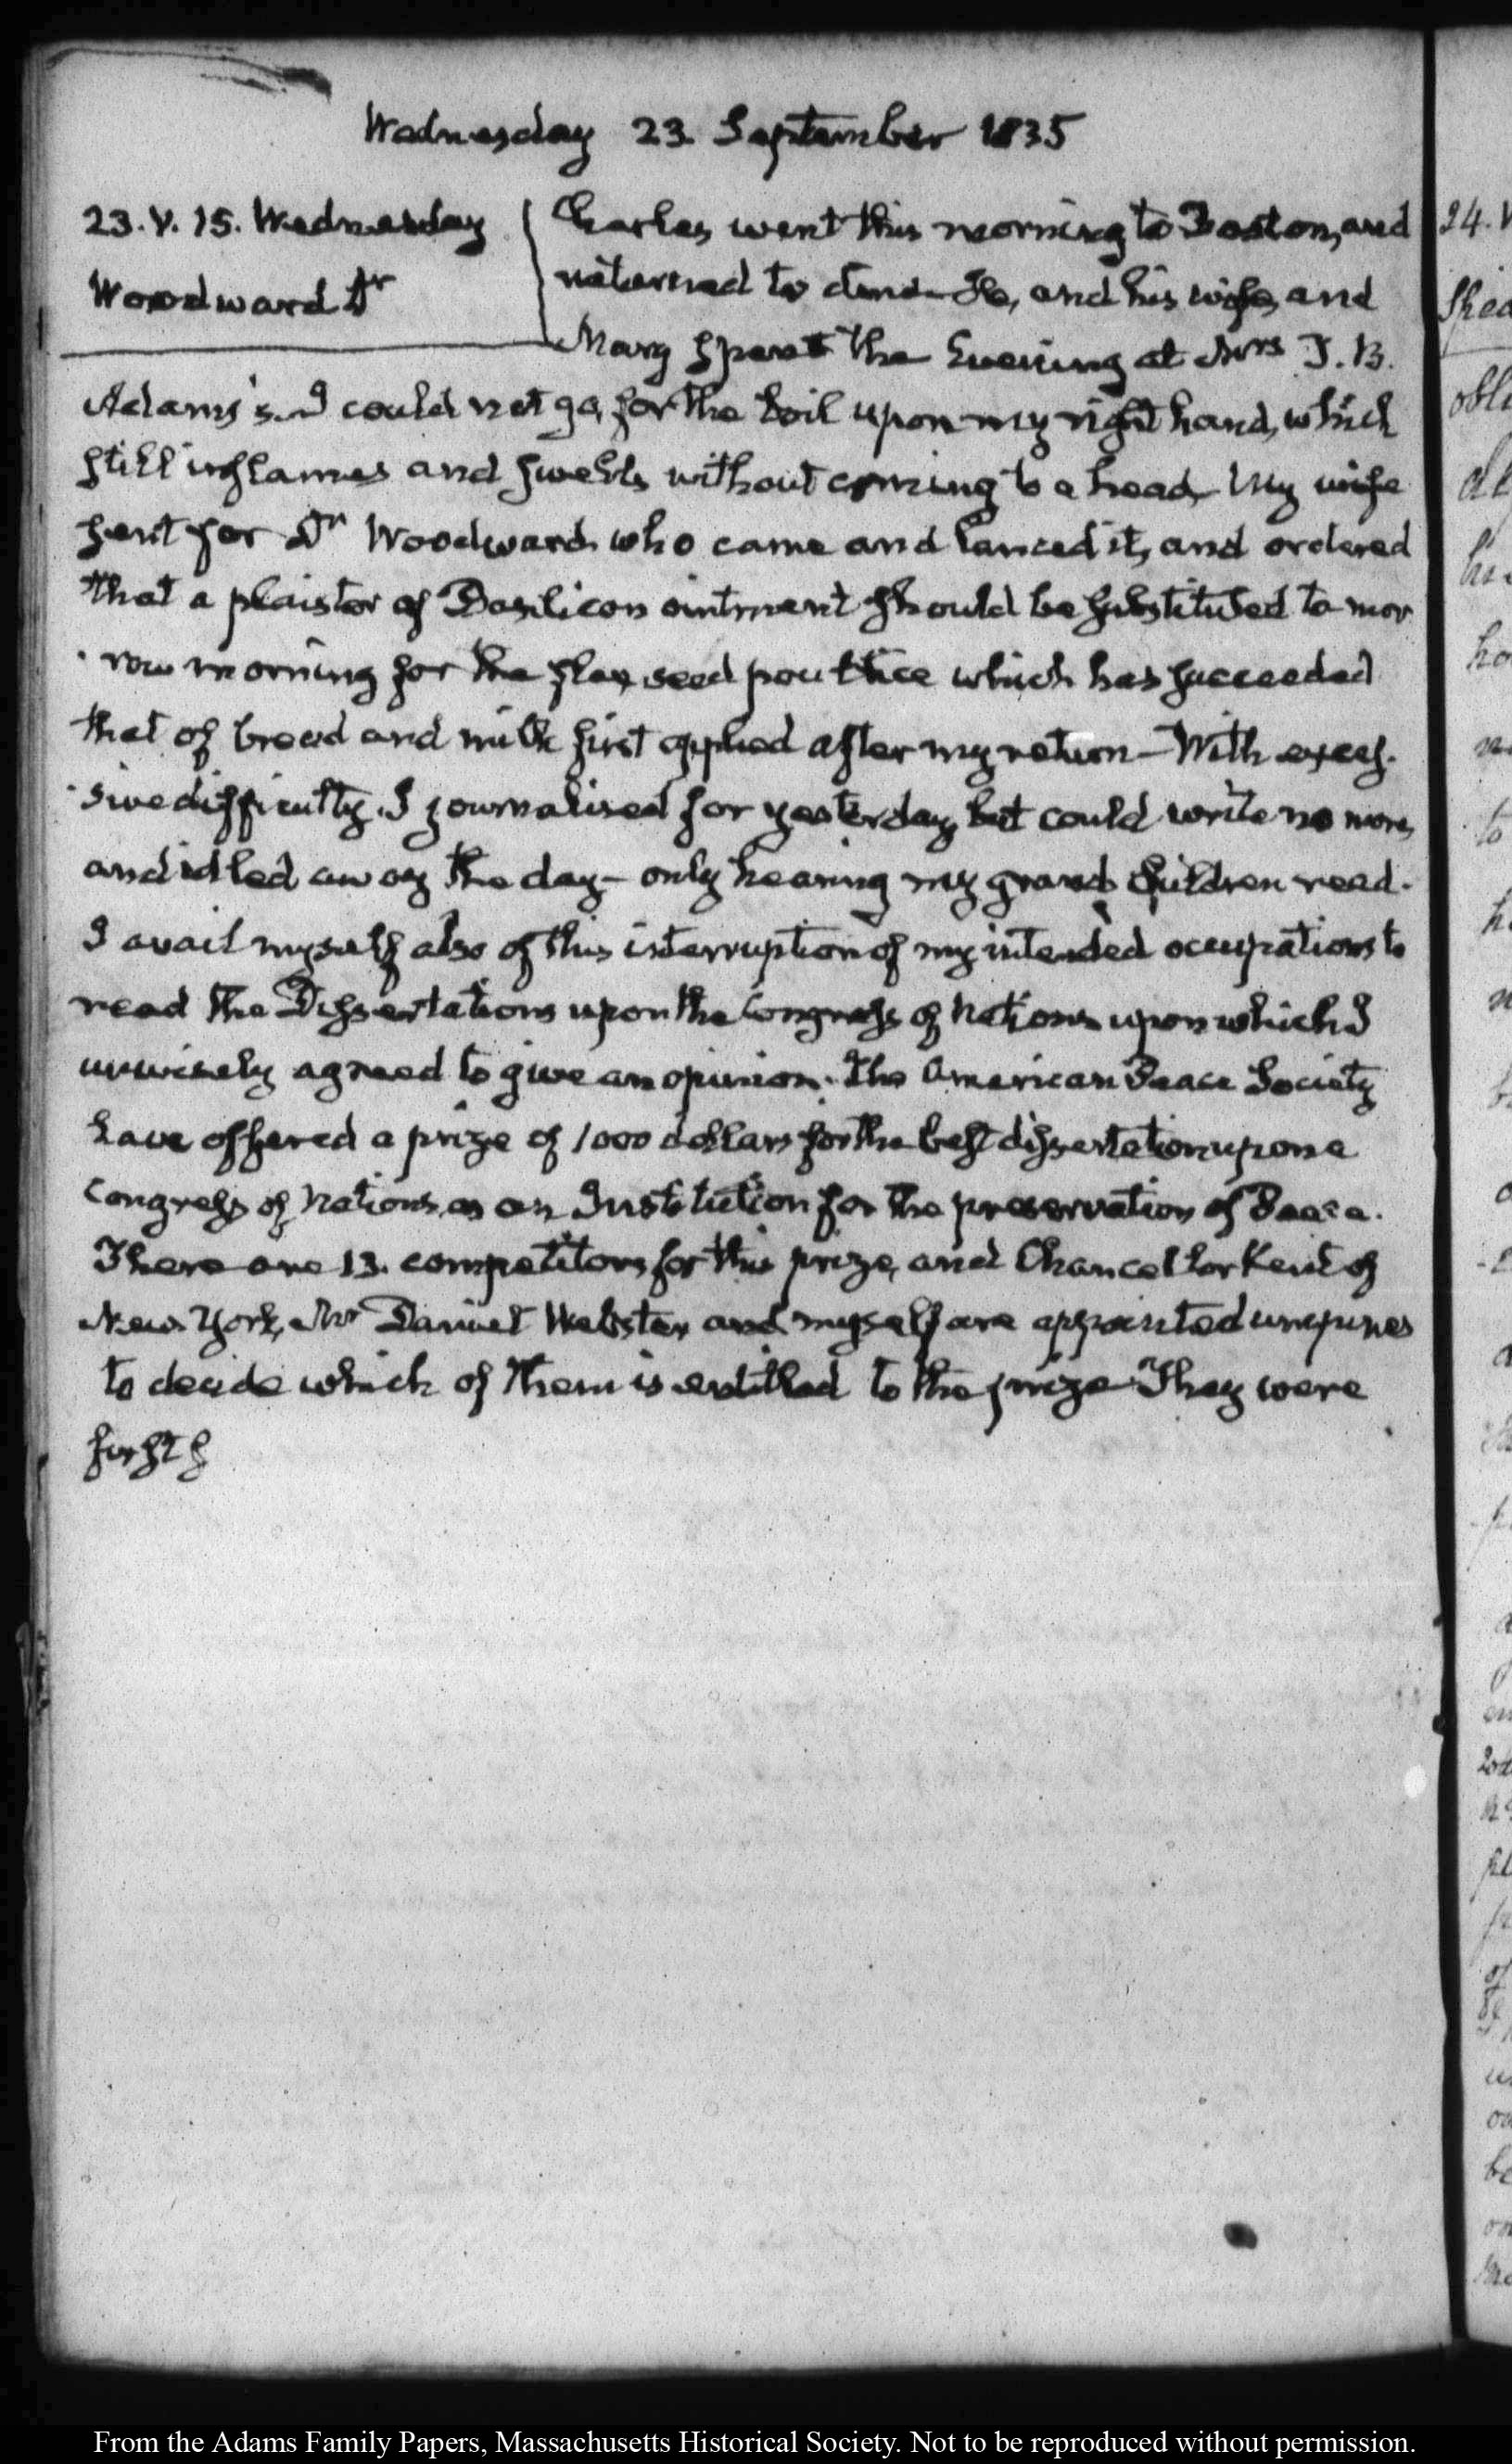 Wednesday 23 September 1835
23. V. 15. Wednesday
Woodward Dr
Charles went this morning to Boston, and
returned to dine. He, and his wife, and
Mary spent the Evening at Mrs T. B.
Adams's. I could not go, for the boil upon my right hand, which
still inflames and swells without coming to a head. My wife
sent for Dr Woodward who came and lanced it, and ordered
that a plaister of Basilicon ointment should be substituted to mor
row morning for the flax seed poultice which has succeeded
that of bread and milk first applied after my return — With exces-
sive difficulty. I journalised for yesterday, but could write no more,
and idled away the day — only hearing my grand children read.
I avail myself also of this interruption of my intended occupations to
read the Dissertations upon the Congress of Nations upon which I
unwisely agreed to give an opinion. The American Peace Society
have offered a prize of 1000 dollars for the best dissertation upon a
Congress of Nations, as an Institution for the preservation of Peace.
There are 13. competitors for this prize, and Chancellor Kent of
New York, Mr Daniel Webster and myself are appointed umpires
to decide which of them is entitled to the prize. They were
24. V
From the Adams Family Papers, Massachusetts Historical Society. Not to be reproduced without permission.